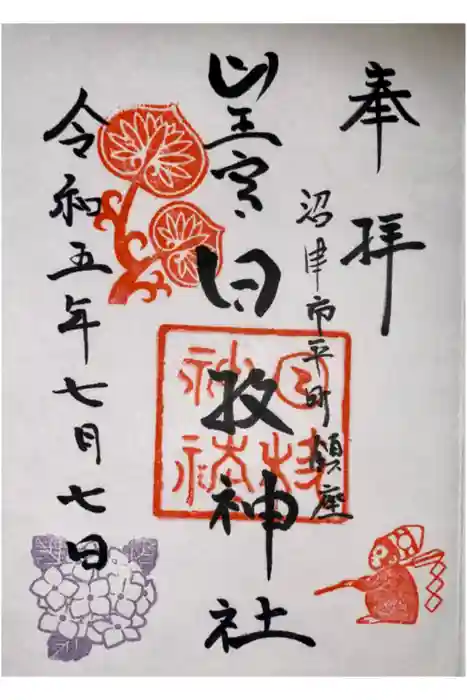 奉拝
沼津市平町鎮座
山王宮日枝神社
日枝神社
令和五年七月七日